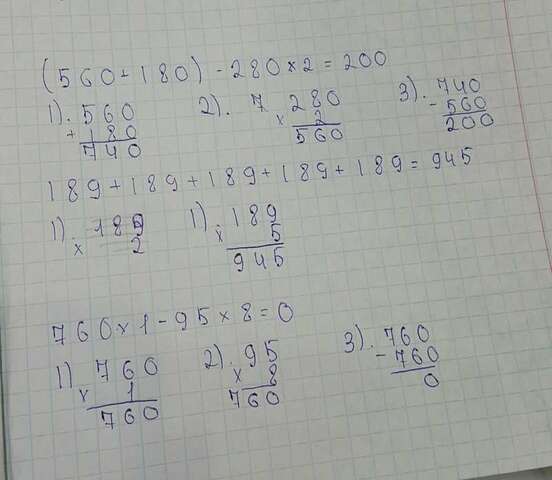 (560+180)-280×2=200
1). 560 2). 7 280 3). 740
+180 × 2 -560
740 560 200
189+189+189+189+189=945
1). 189 1). 189
× 2 × 5
945
760×1-95×8=0
1) 760 2). 95 3). 760
× 1 × 8 -760
760 760 0